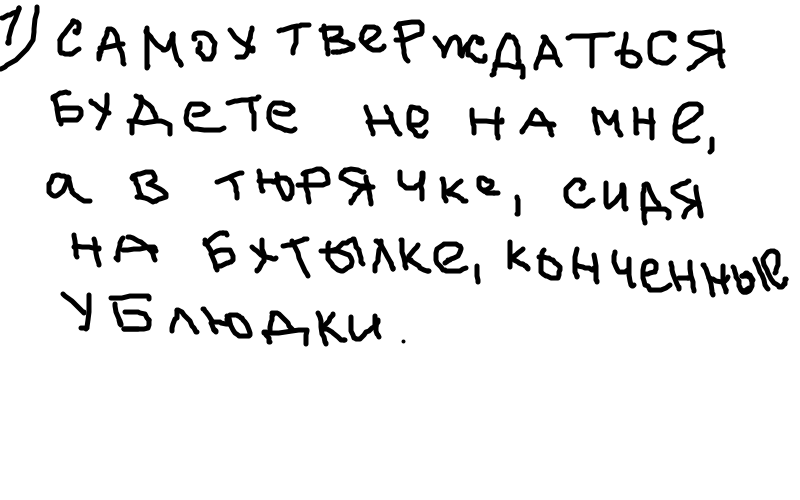 1) САМОУТВЕРЖДАТЬСЯ
БУДЕТЕ НЕ НА МНЕ,
а В ТЮРЯЧКЕ, СИДЯ
НА БУТЫЛКЕ, КОНЧЕННЫЕ
УБЛЮДКИ.